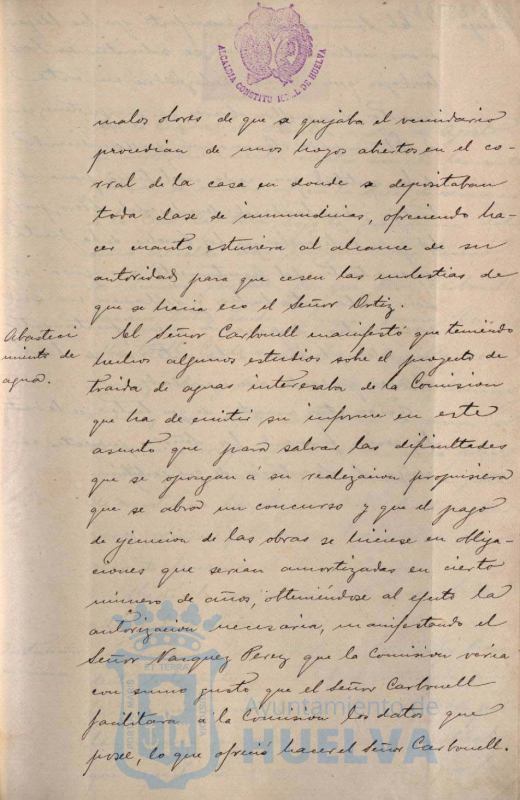 ALCALDIA CONSTITU DE HUELVA
malos olores de que se quejaba el vecindario
procedian de unos hoyos abiertos en el co-
rral de la casa en donde se depositaban
toda clase de inmundicias, ofreciendo ha-
cer cuanto estuviera al alcance de su
autoridad para que cesen las molestias de
que se hacia eco el Señor Ortiz.
Abasteci
miento de
agua.
El Señor Carbonell manifestó que teniendo
hechos algunos estudios sobre el proyecto de
traida de aguas interesaba de la Comision
que ha de emitir su informe en este
asunto que para salvar las dificultades
que se opongan á su realizacion propusiera
que se abra un concurso y que el pago
de ejecucion de las obras se hiciese en obliga-
ciones que serian amortizadas en cierto
número de años, obteniéndose al efecto la
autorizacion necesaria, manifestando el
Señor Vazquez Perez que la Comision veria
con sumo gusto que el Señor Carbonell
facilitara á la Comision los datos que
posee, lo que ofreció hacer el Señor Carbonell.
Ayuntamiento de
HUELVA